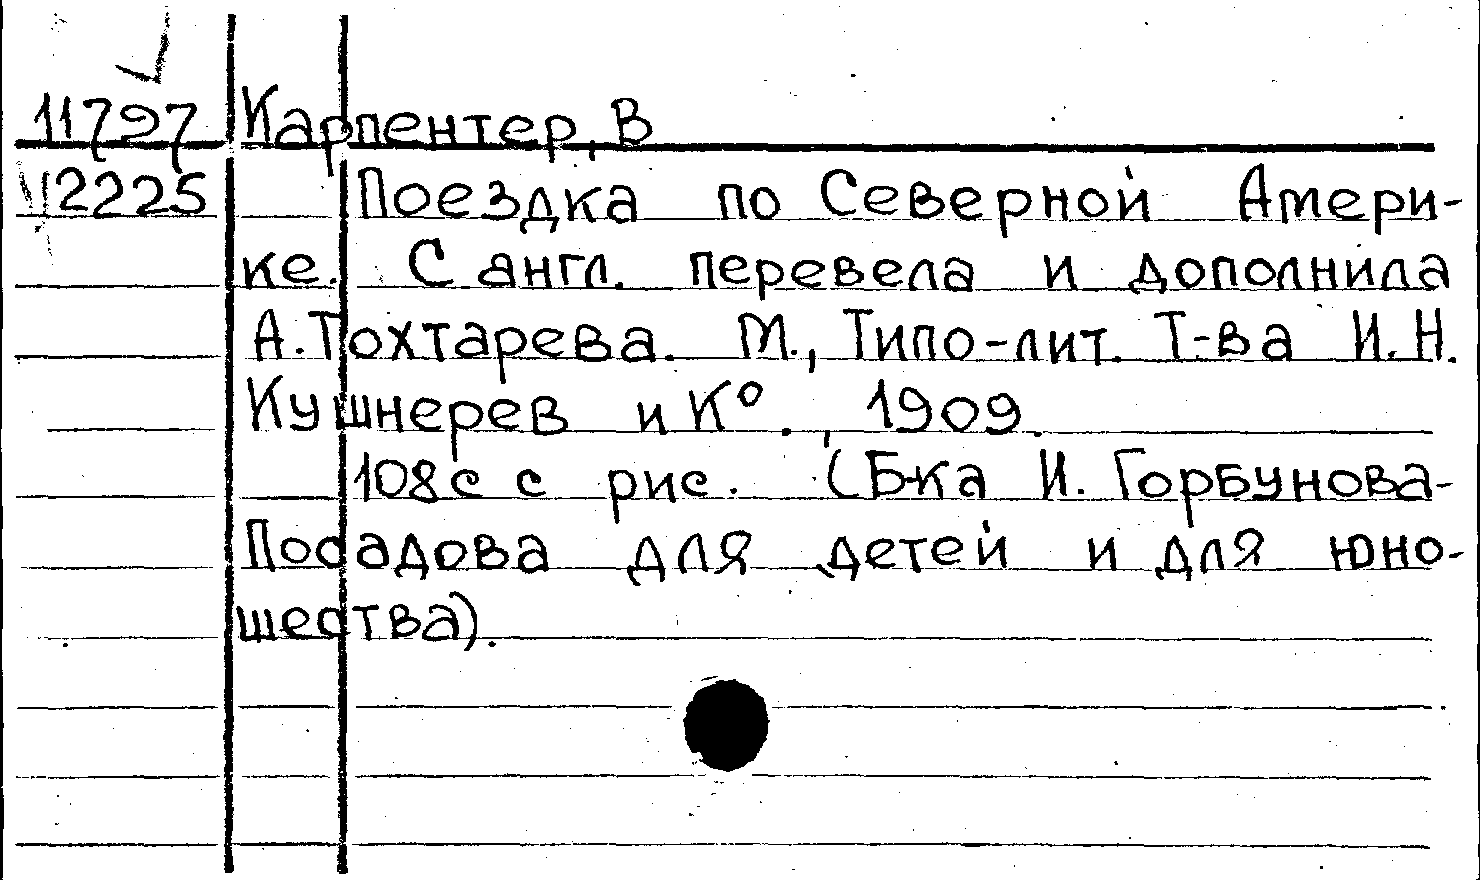 11797 Карпентер, В
12225 Поездка по Северной Амери-
ке. С англ. перевела и дополнила
А.Тохтарева. М., Типо-лит. Т-ва И.Н.
Кушнерев и К°., 1909.
108с с рис. (Б-ка И. Горбунова-
Посадова для детей и для юно-
шества).